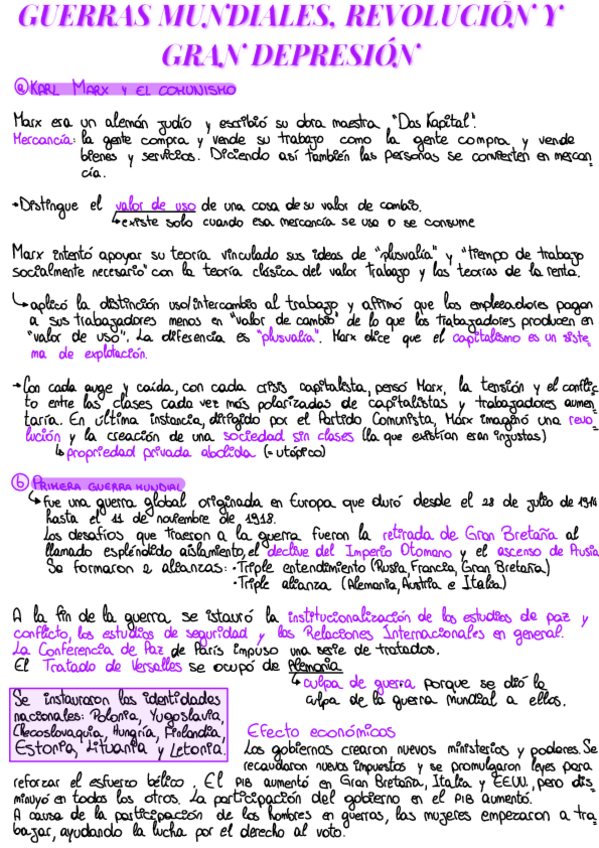 GUERRAS MUNDIALES, REVOLUCIÓN Y
GRAN DEPRESIÓN
a KARL MARX Y EL COMUNISMO
Marx era un alemán judío y escribió su obra maestra "Das Kapital".
Mercancía: la gente compra y vende su trabajo como la gente compra y vende
bienes y servicios. Diciendo así también las personas se convierten en mercan
cía.
→Distingue el valor de uso de una cosa de su valor de cambio.
↳existe solo cuando esa mercancía se usa o se consume
Marx intentó apoyar su teoría vinculado sus ideas de "plusvalía" y "tiempo de trabajo
socialmente necesario" con la teoría clásica del valor trabajo y las teorías de la renta.
↳aplicó la distinción uso/intercambio al trabajo y afirmó que los empleadores pagan
a sus trabajadores menos en "valor de cambio" de lo que los trabajadores producen en
"valor de uso". La diferencia es "plusvalía". Marx dice que el capitalismo es un siste
ma de explotación.
→Con cada auge y caída, con cada crisis capitalista, pensó Marx, la tensión y el conflic
to entre las clases cada vez más polarizadas de capitalistas y trabajadores aumen
taría. En última instancia, dirigido por el Partido Comunista, Marx imaginó una revo
lución y la creación de una sociedad sin clases (la que existían eran injustas)
↳propiedad privada abolida (= utópico)
b PRIMERA GUERRA MUNDIAL
↳Fue una guerra global originada en Europa que duró desde el 28 de julio de 1914
hasta el 11 de noviembre de 1918.
Los desafíos que traeron a la guerra fueron la retirada de Gran Bretaña al
llamado espléndido aislamiento, el declive del Imperio Otomano y el ascenso de Prusia
Se formaron 2 alianzas: -Triple entendimiento (Rusia, Francia, Gran Bretaña)
-Triple alianza (Alemania, Austria e Italia)
A la fin de la guerra se istauró la institucionalización de los estudios de paz y
conflicto, los estudios de seguridad y las Relaciones Internacionales en general.
La Conferencia de Paz de París impuso una serie de tratados.
El Tratado de Versalles se ocupó de Alemania
↳culpa de guerra porque se dió la
culpa de la guerra mundial a ellos.
Se instauraron las identidades
nacionales: Polonia, Yugoslavia,
Checoslovaquia, Hungría, Finlandia,
Estonia, Lituania y Letonia.
Efecto económicos
Los gobiernos crearon nuevos ministerios y poderes. Se
recaudaron nuevos impuestos y se promulgaron leyes para
reforzar el esfuerzo bélico. El PIB aumentó en Gran Bretaña, Italia y EEUU, pero dis
minuyó en todos los otros. La participación del gobierno en el PIB aumentó.
A causa de la participación de los hombres en guerras, las mujeres empezaron a tra
bajar, ayudando la lucha por el derecho al voto.